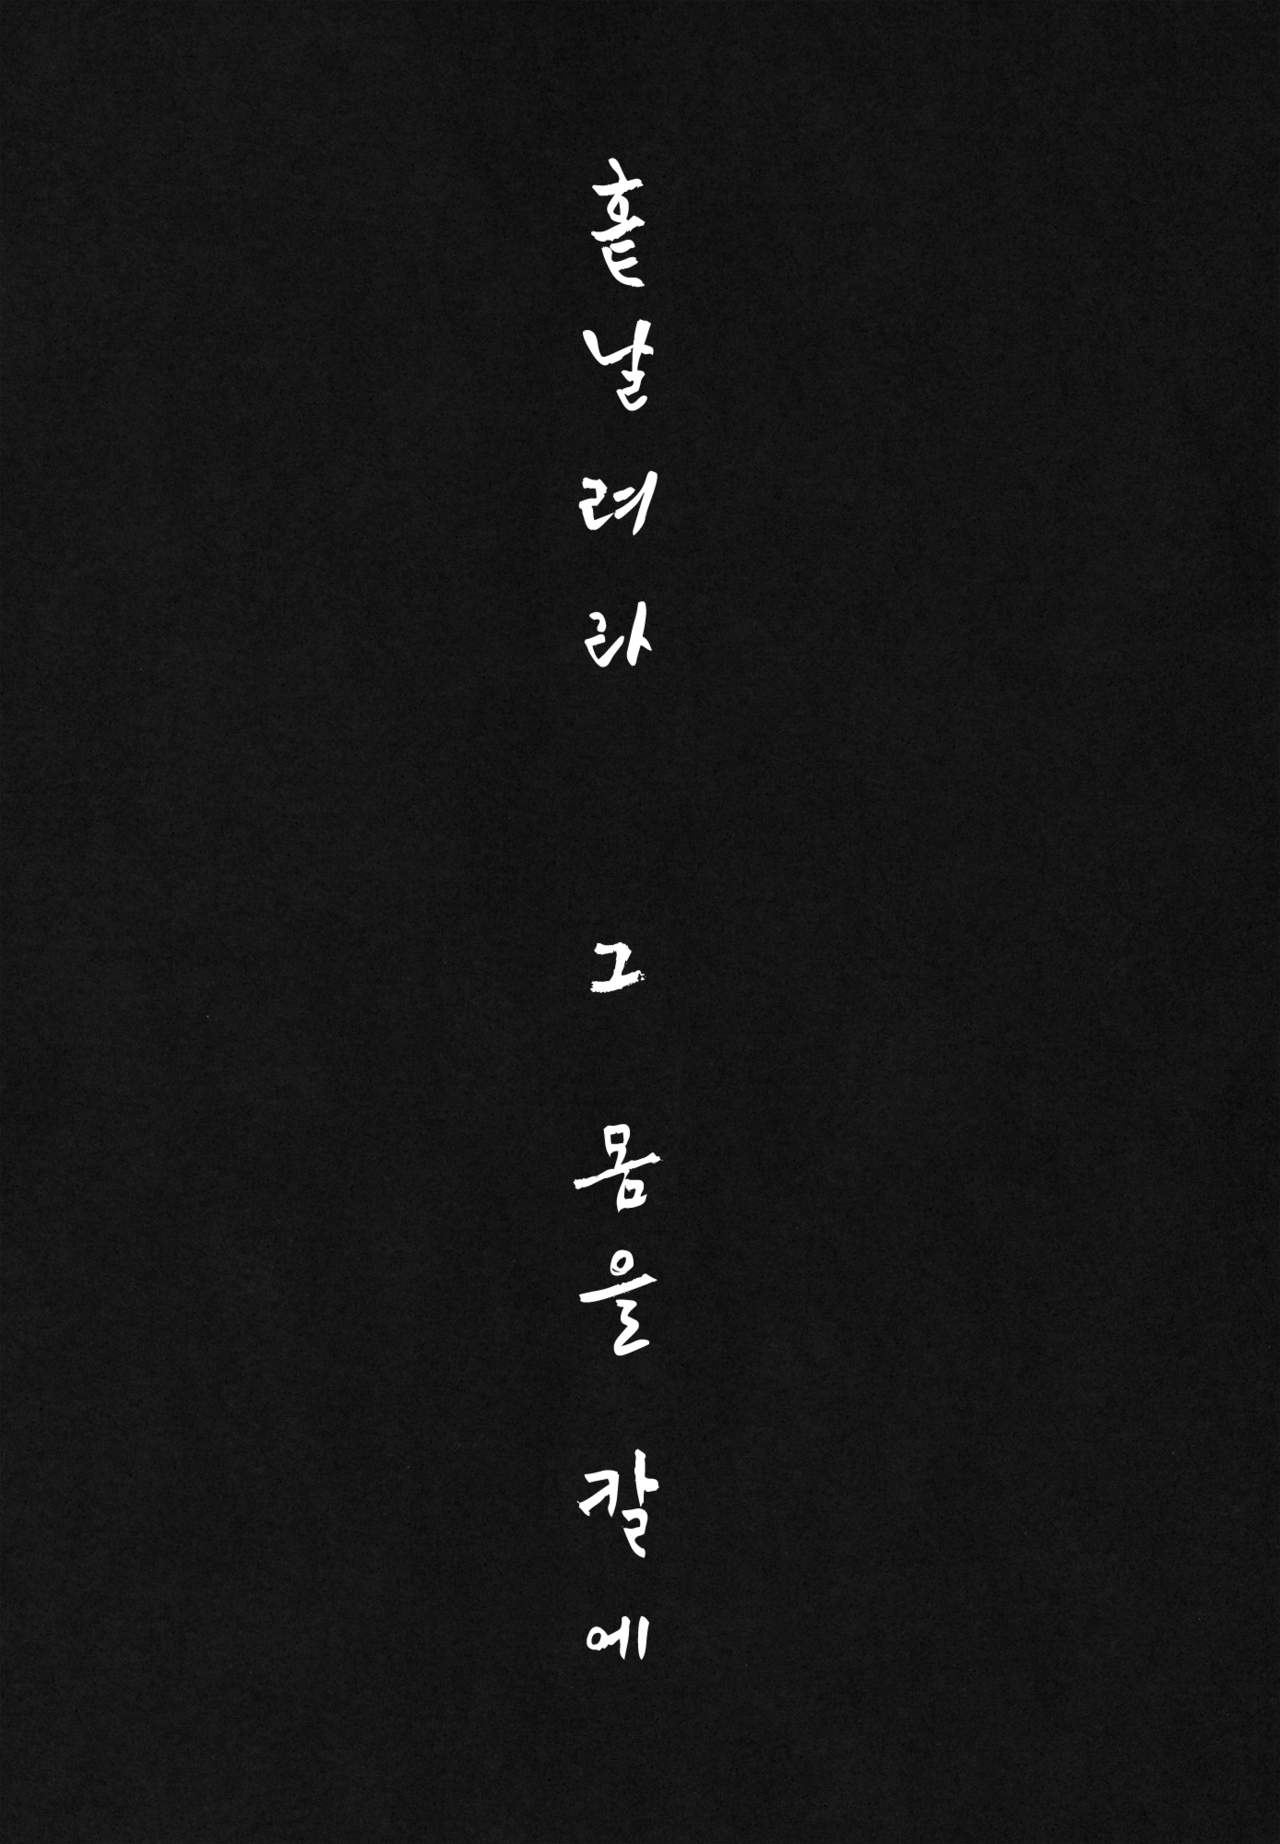 흩날려라 그 몸을 칼에